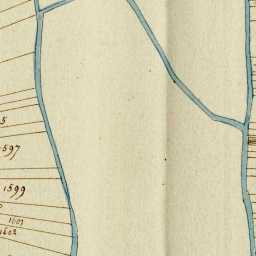 5
597
1599
1601
1602